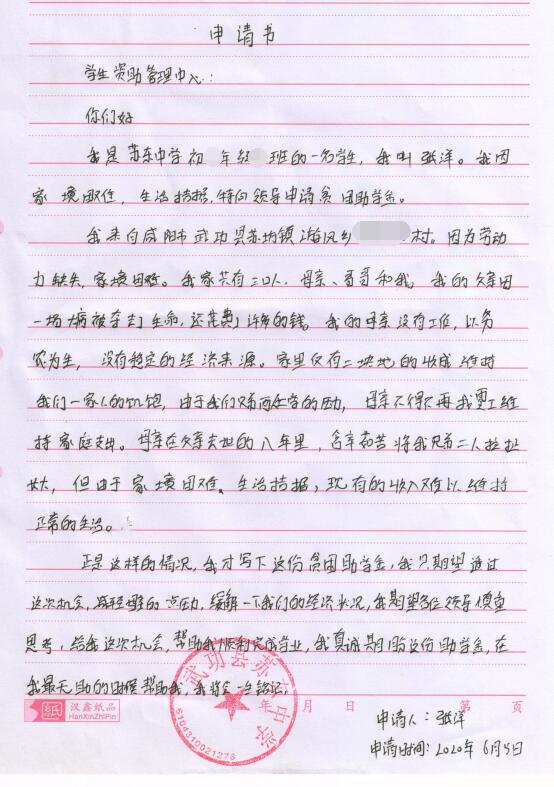 申请书
学生资助管理中心：
你们好
我是苏东中学初 年级 班的一名学生，我叫张洋。我因
家境困难，生活拮据，特向领导申请贫困助学金。
我来自咸阳市武功县苏坊镇游凤乡 村。因为劳动
力缺失，家境困难。我家共有三口人，母亲、哥哥和我，我的父亲因
一场大病被夺去了生命，还花费了许多的钱。我的母亲没有工作，以务
农为生，没有稳定的经济来源。家里仅有二块地的收成维持
我们一家人的饥饱，由于我们兄弟两在学的压力，母亲不得不再找零工维
持家庭支出。母亲在父亲去世的八年里，含辛茹苦将我兄弟二人拉扯
长大，但由于家境困难、生活拮据，现有的收入难以维持
正常的生活。
正是这样的情况，我才写下这份贫困助学金，我只期望通过
这次机会，减轻母亲的一点压力，缓解一下我们的经济状况，我期望各位领导慎重
思考，给我这次机会，帮助我顺利完成学业，我真诚期盼这份助学金，在
我最无助的时候帮助我，我将会一生铭记。
武功县苏东中学
6104310021276
纸 汉鑫纸品 年 月 日 第 页
HanXinZhiPin
申请人：张洋
申请时间：2020年6月4日